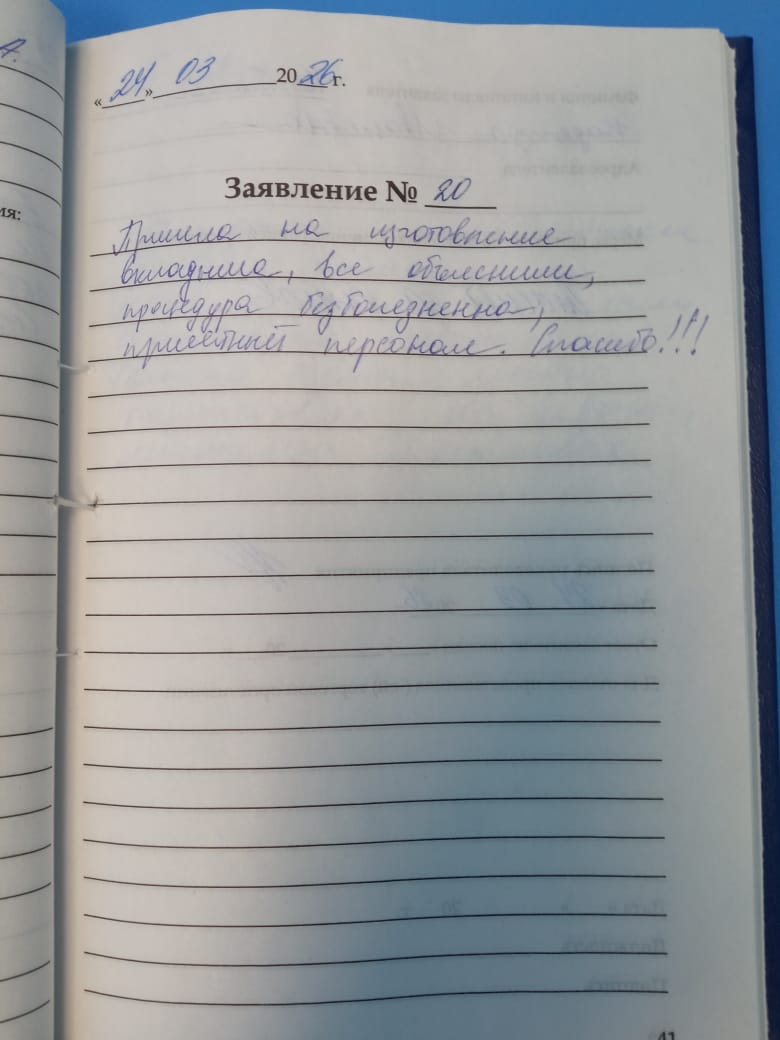 я.
ия:
«24» 03 2026 г.
Заявление № 20
Пришла на изготовление
вкладыша, все объяснили,
процедура безболезненна,
приятный персонал. Спасибо!!!
41